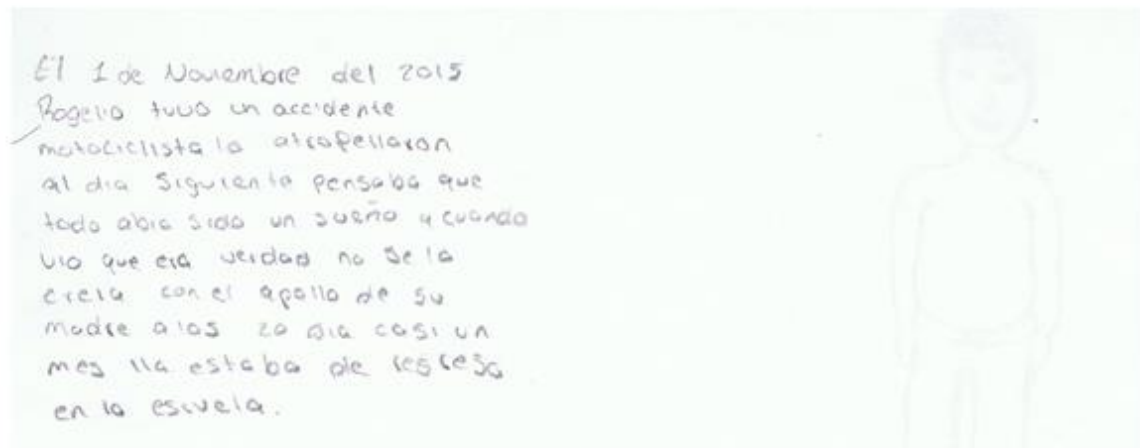 El 1 de Noviembre del 2015
Rogelio tuvo un accidente
motociclista lo atropellaron
al dia siguiente pensaba que
todo abia sido un sueño y cuando
vio que era verdad no se la
creia con el apollo de su
madre a los 20 dia casi un
mes lla estaba de regreso
en la escuela.